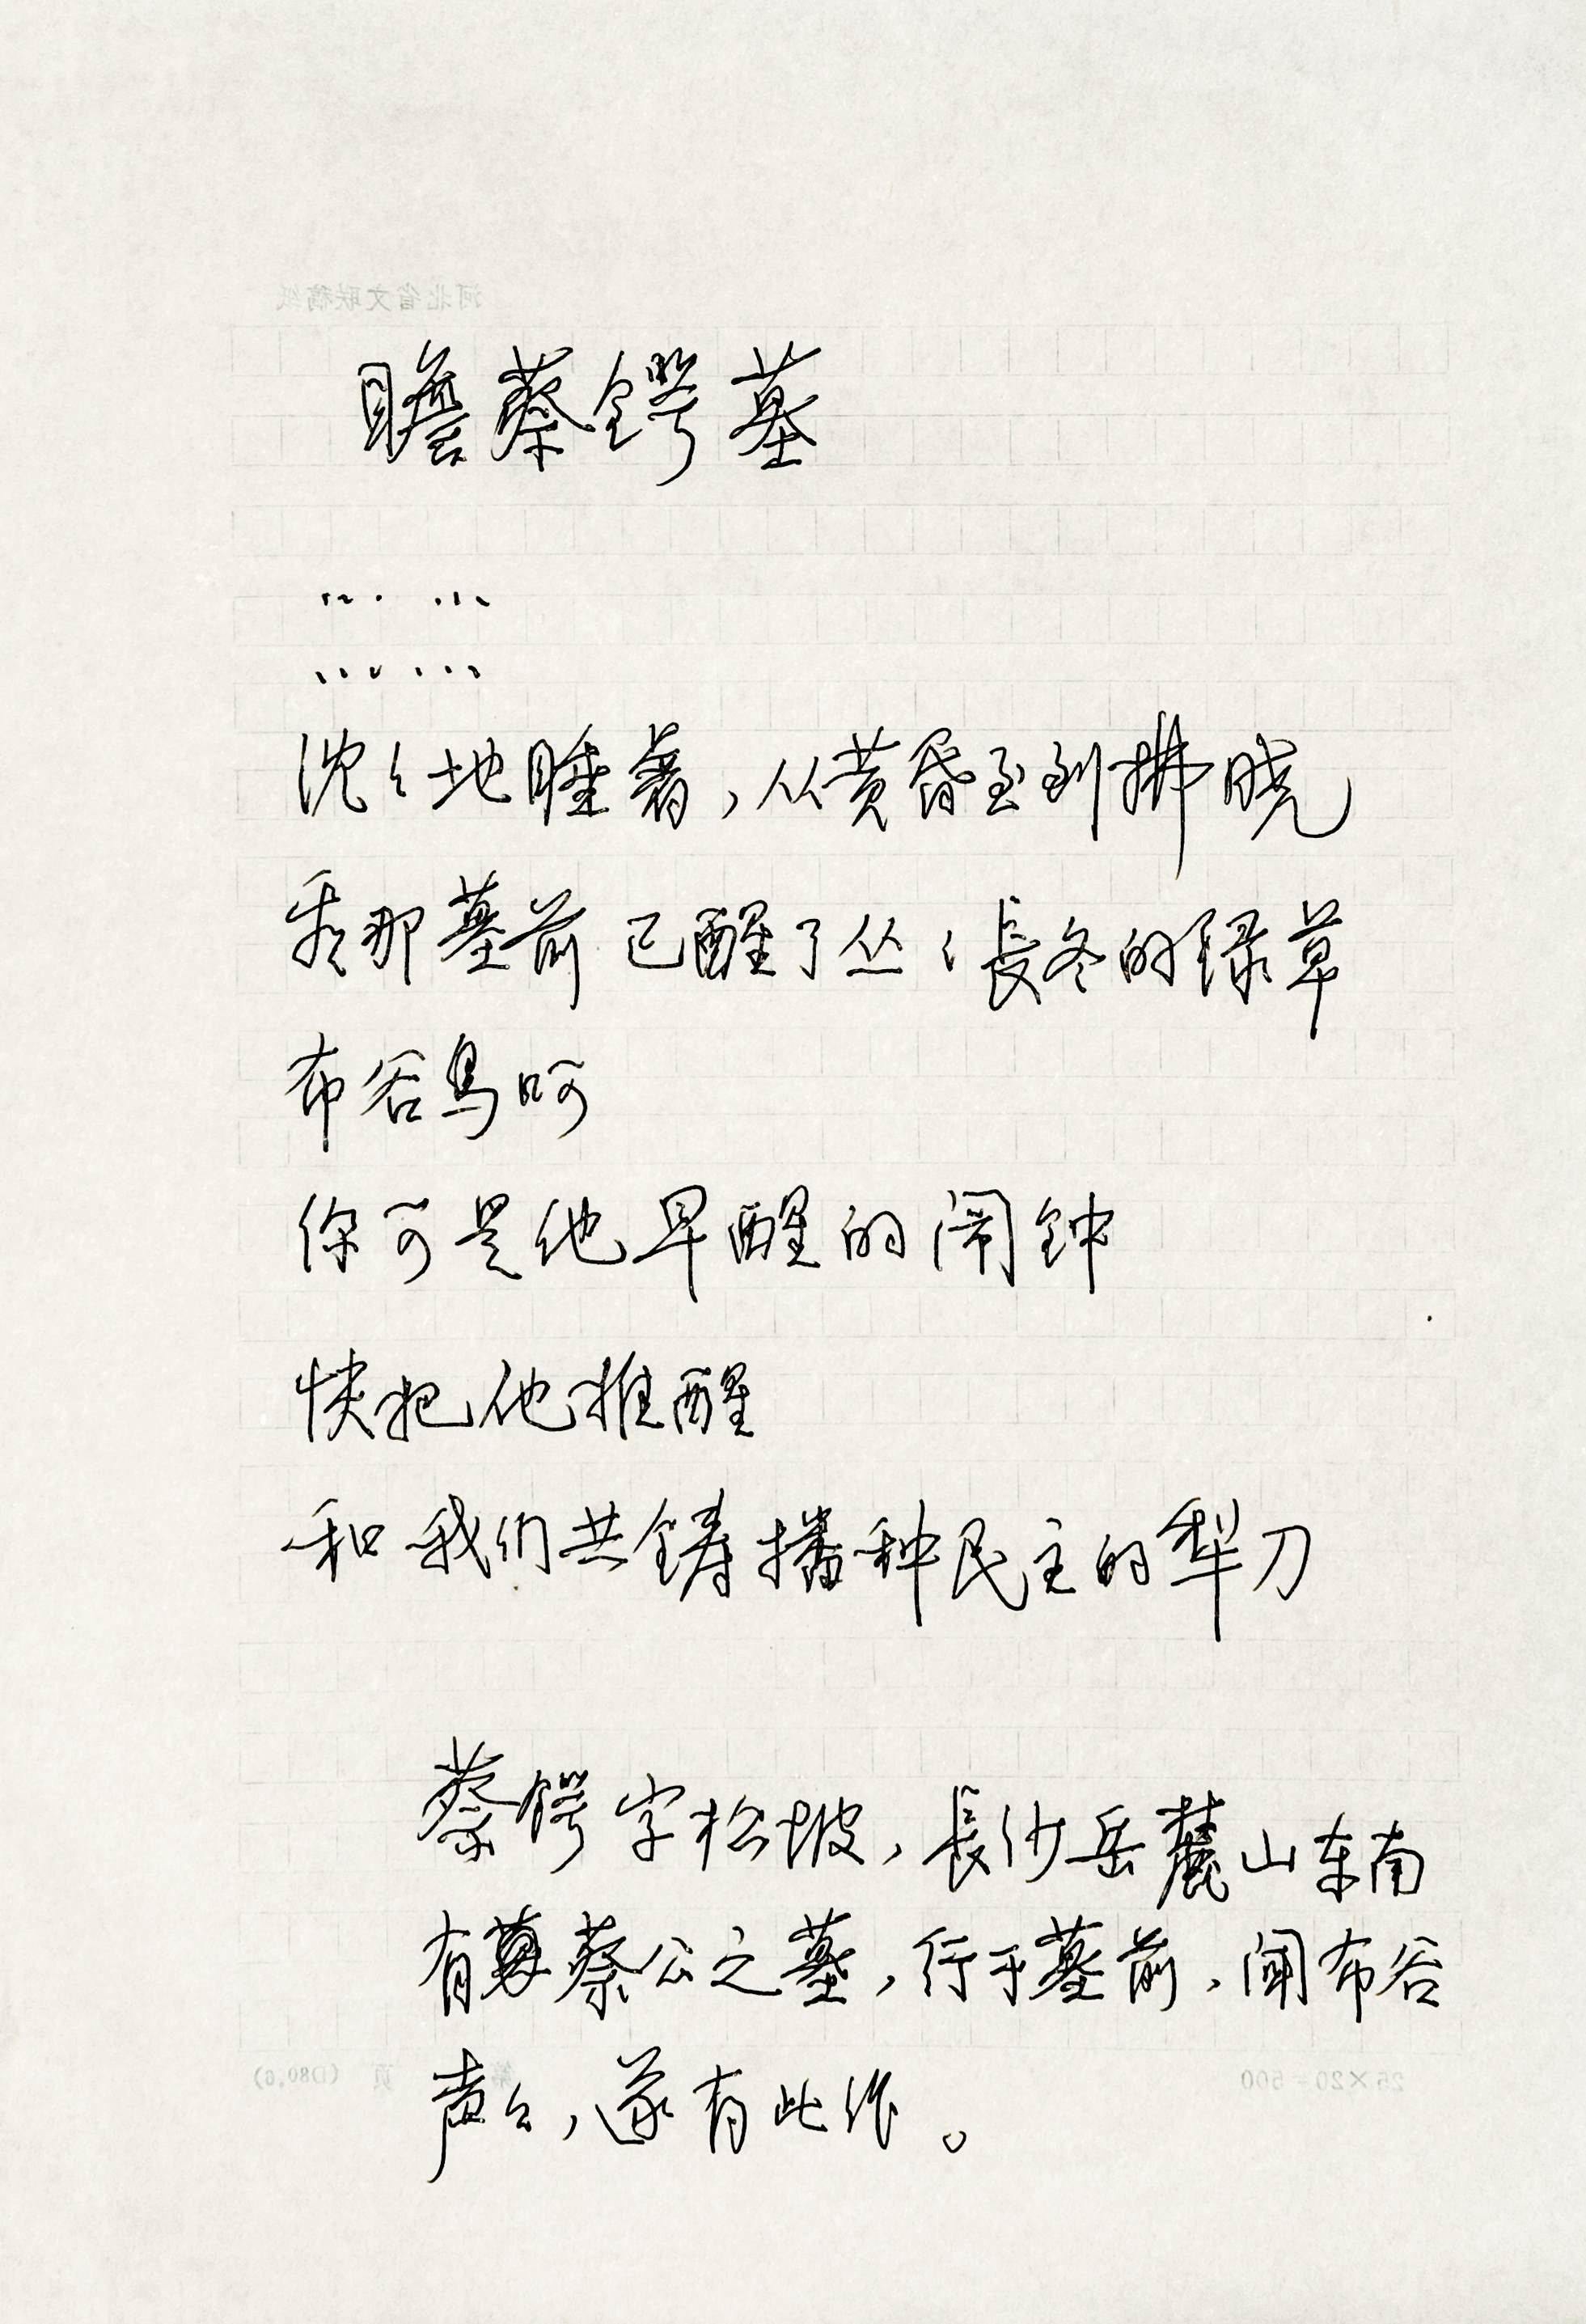 河北省文联稿纸
瞻蔡锷墓
… …
… …
沈々地睡着，从黄昏至到拂晓
那墓前已醒了丛々長冬的绿草
布谷鸟呵
你可是他早醒的闹钟
快把他推醒
和我们共铸播种民主的犁刀
蔡锷字松坡，長沙岳麓山东南
有蔡公之墓，行于墓前，闻布谷
声々，遂有此作。
第 页 (D80.6)
25×20=500